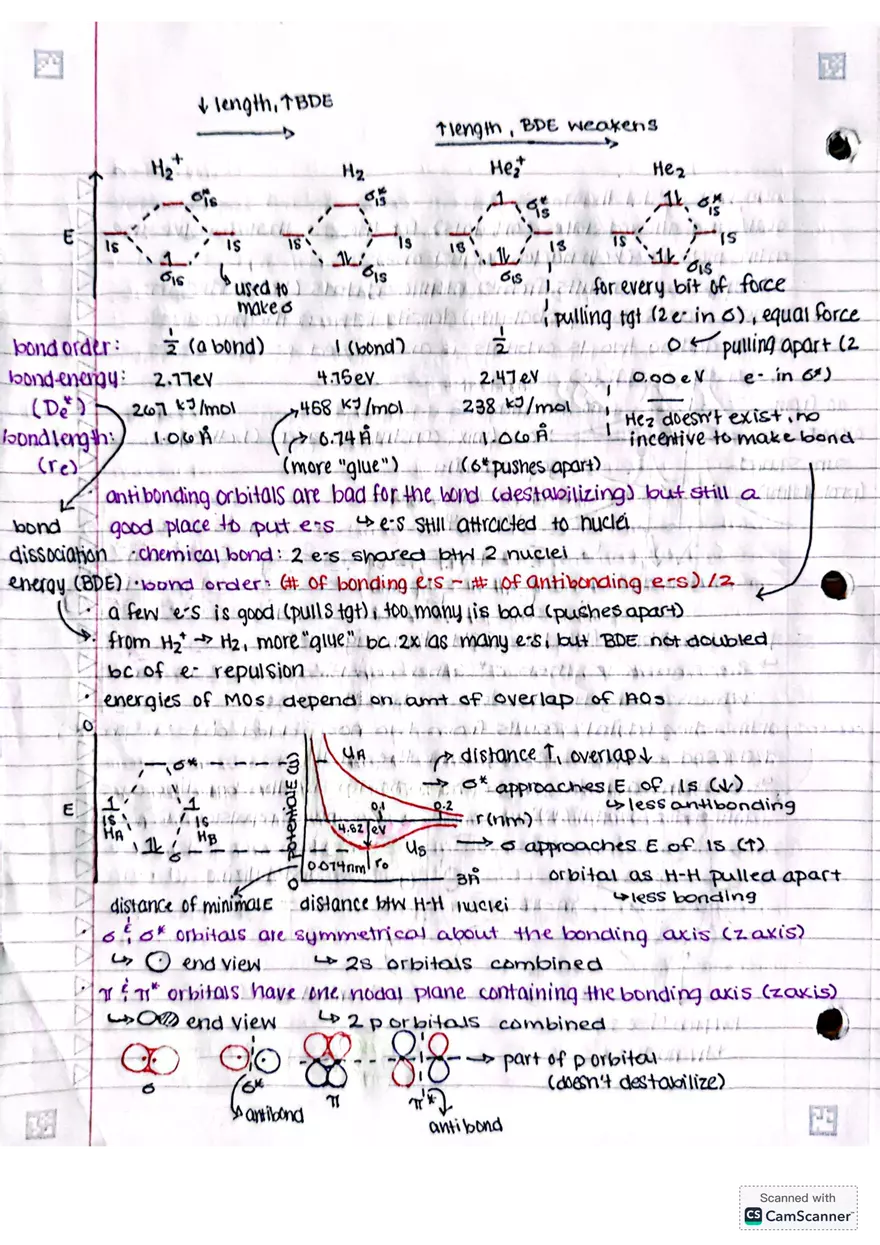 ↓ length, ↑ BDE
↑ length, BDE weakens
H₂⁺ H₂ He₂⁺ He₂
σ*1s σ*1s 1 σ*1s 1L σ*1s
E 1s 1s 1s 1s 1s 1s 1s 1s
1 σ1s 1L σ1s 1L σ1s 1L σ1s
↳ used to make σ
for every bit of force
pulling tgt (2 e⁻ in σ), equal force
bond order: 1/2 (a bond) 1 (bond) 1/2 0 ← pulling apart (2
bond energy: 2.77eV 4.75eV 2.47eV 0.00 eV e⁻ in σ*)
(De*) 267 kJ/mol 458 kJ/mol 238 kJ/mol He₂ doesn't exist, no
bond length: 1.06 Å 0.74 Å 1.06 Å incentive to make bond
(re) (more "glue") (σ* pushes apart)
· antibonding orbitals are bad for the bond (destabilizing) but still a
bond good place to put e⁻s ↳ e⁻s still attracted to nuclei
dissociation · chemical bond: 2 e⁻s shared btw 2 nuclei
energy (BDE) · bond order: (# of bonding e⁻s - # of antibonding e⁻s) /2
· a few e⁻s is good (pulls tgt), too many is bad (pushes apart)
from H₂⁺ → H₂, more "glue" bc 2x as many e⁻s, but BDE not doubled
bc of e⁻ repulsion
· energies of MOs depend on amt of overlap of AOs
0
σ* UA → distance ↑, overlap ↓
→ σ* approaches E of 1s (↓)
E 1 1 0.1 0.2 ↳ less antibonding
1s 1s r(nm)
HA HB 4.52 eV
1L σ Us → σ approaches E of 1s (↑)
0 potential E (u) 0.074nm r₀ 3Å orbital as H-H pulled apart
distance of minimal E distance btw H-H nuclei ↳ less bonding
· σ & σ* orbitals are symmetrical about the bonding axis (z axis)
↳ end view ↳ 2s orbitals combined
· π & π* orbitals have one nodal plane containing the bonding axis (z axis)
↳ end view ↳ 2 p orbitals combined
→ part of p orbital
σ σ* π π* (doesn't destabilize)
antibond
antibond
Scanned with
CS CamScanner